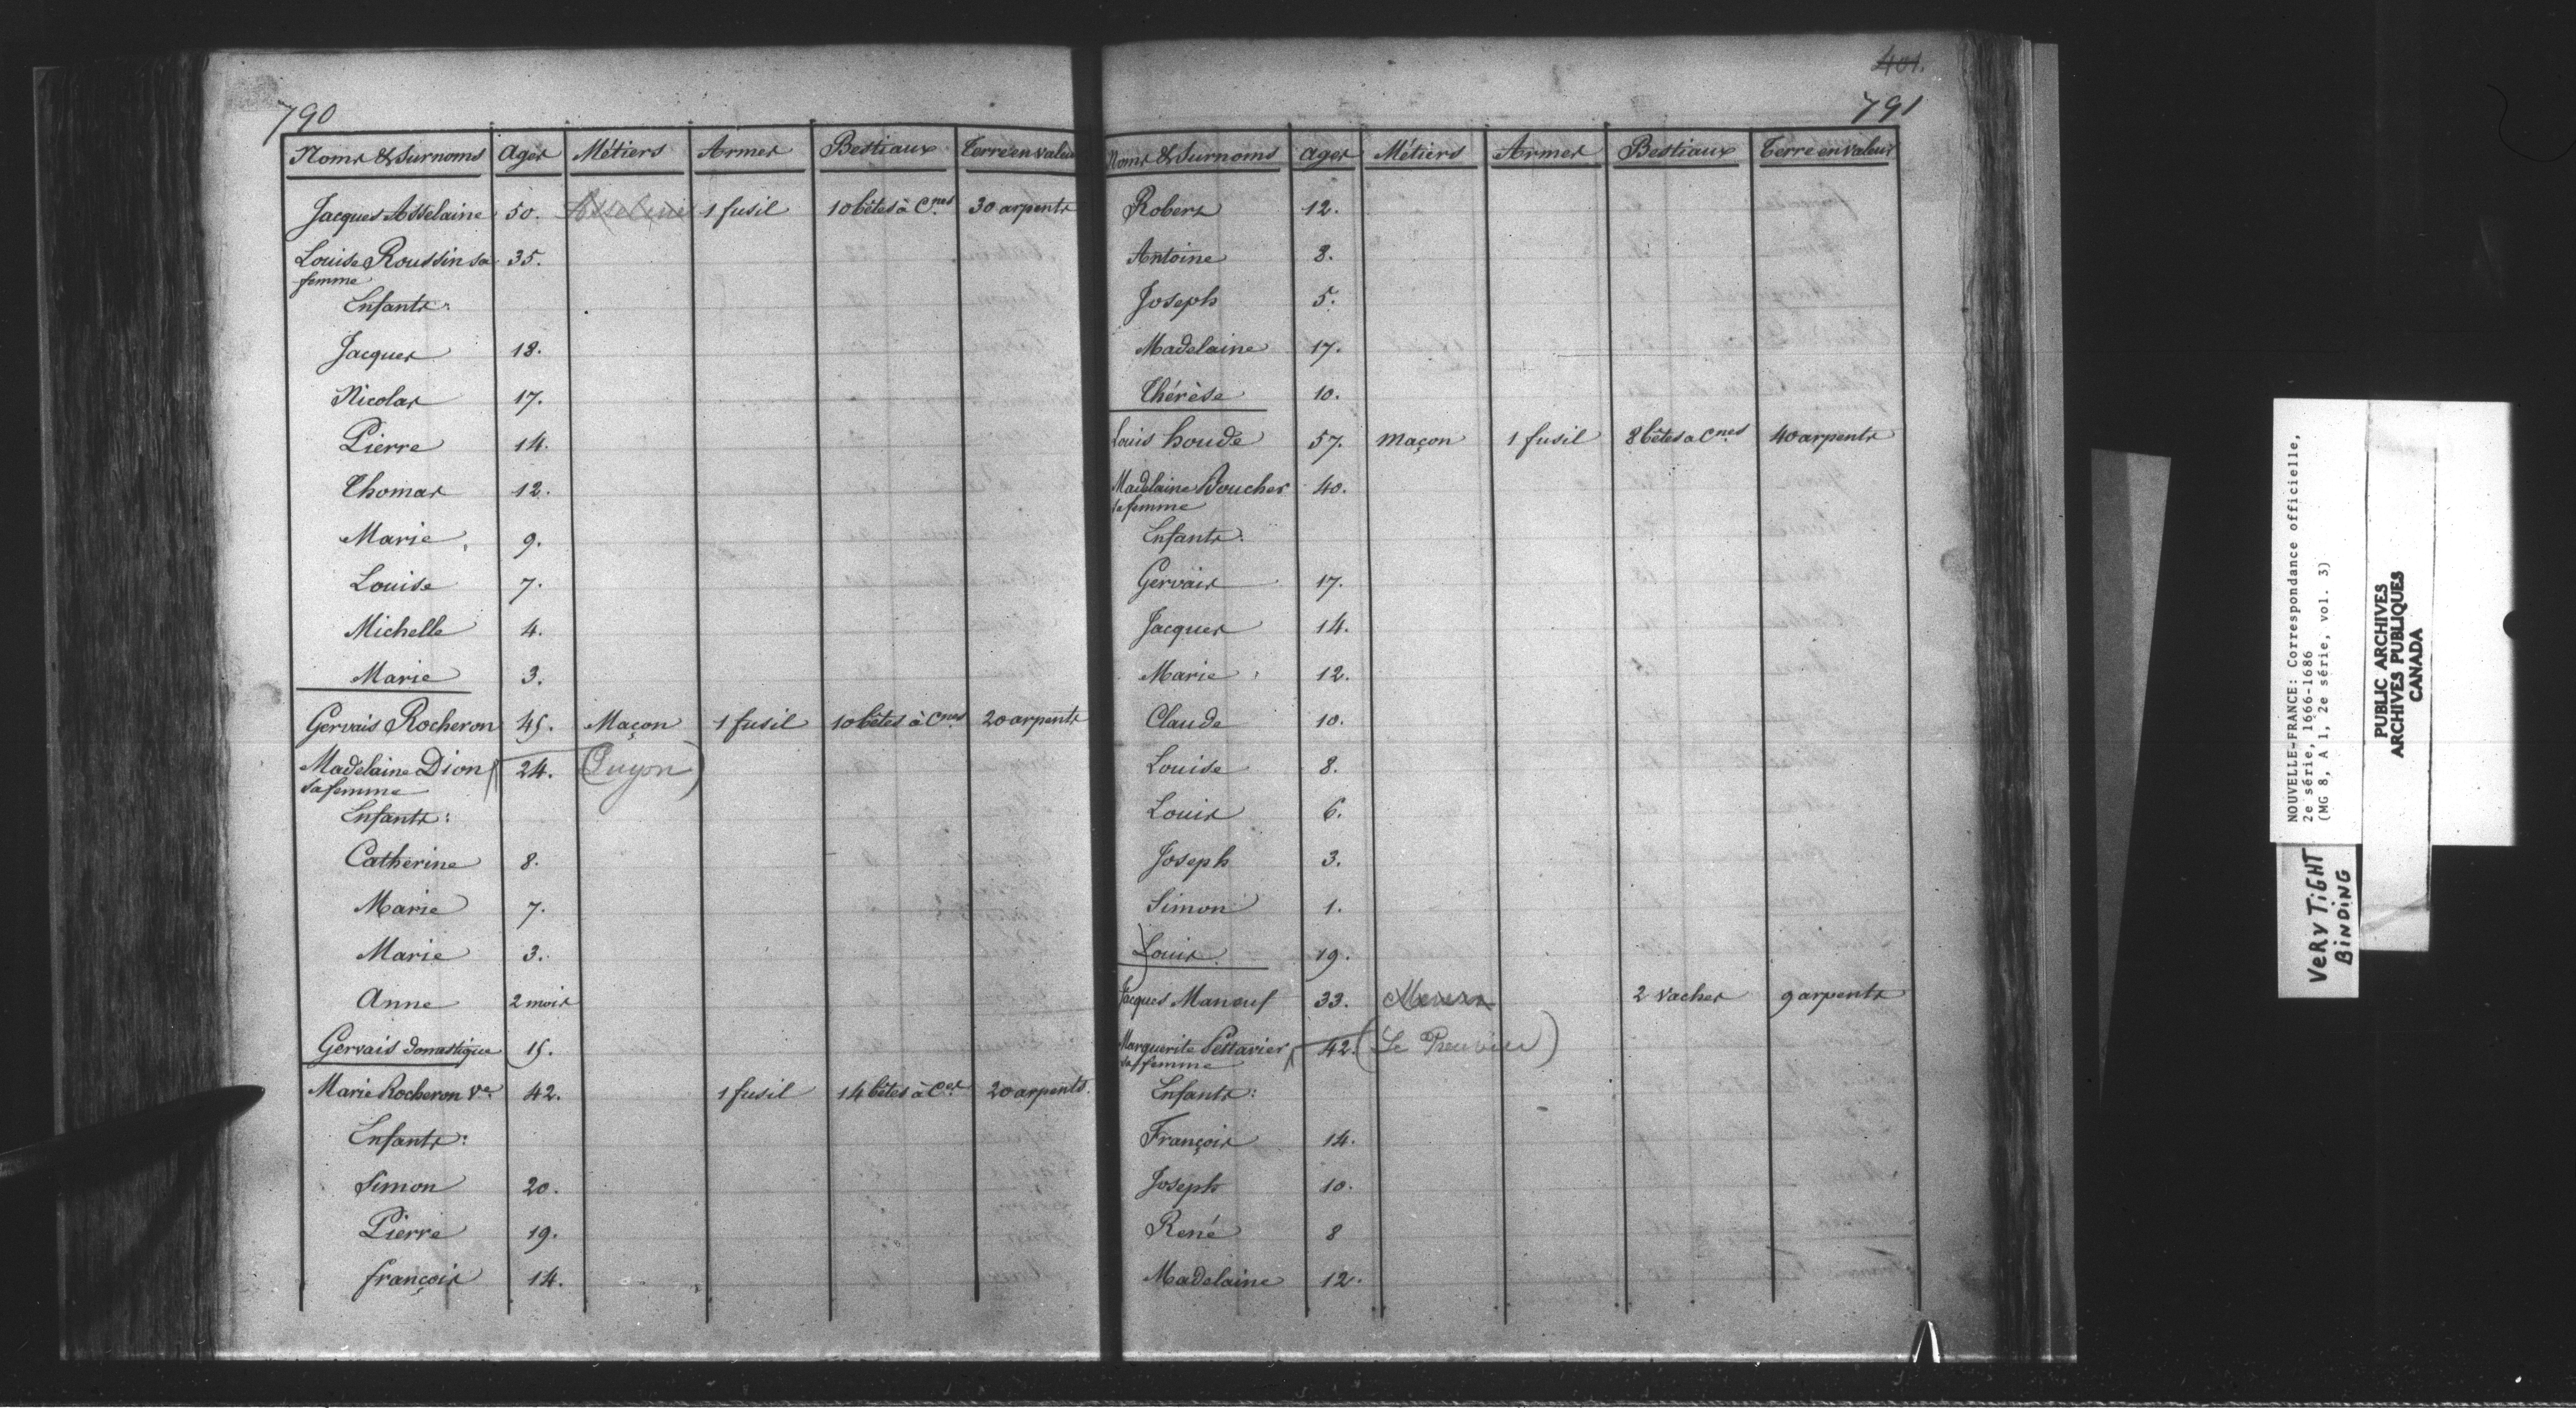 790
Noms & Surnoms Ages Métiers Armes Bestiaux Terre en valeur
Jacques Asselaine 50. 1 fusil 10 bêtes à Cnes 30 arpents
Louise Roussin sa 35.
femme
Enfants:
Jacques 18.
Nicolas 17.
Pierre 14.
Thomas 12.
Marie 9.
Louise 7.
Michelle 4.
Marie 3.
Gervais Rocheron 45. Maçon 1 fusil 10 bêtes à Cnes 20 arpents
Madelaine Dion 24. (Guyon)
sa femme
Enfants:
Catherine 8.
Marie 7.
Marie 3.
Anne 2 mois
Gervais domestique 15.
Marie Rocheron Ve 42. 1 fusil 14 bêtes à Ces 20 arpents.
Enfants:
Simon 20.
Pierre 19.
françois 14.
401.
791
Noms & Surnoms Ages Métiers Armes Bestiaux Terre en valeur
Robert 12.
Antoine 8.
Joseph 5.
Madelaine 17.
Thérèse 10.
Louis houde 57. Maçon 1 fusil 8 bêtes a Cnes 40 arpents
Madelaine Boucher 40.
sa femme
Enfants:
Gervais 17.
Jacques 14.
Marie 12.
Claude 10.
Louise 8.
Louis 6.
Joseph 3.
Simon 1.
Louis. 19.
Jacques Maneuf 33. 2 vaches 9 arpents
Marguerite 42. (Le
sa femme
Enfants:
François 14.
Joseph 10.
René 8
Madelaine 12.
NOUVELLE-FRANCE: Correspondance officielle,
2e série, 1666-1686
(MG 8, A 1, 2e série, vol. 3)
PUBLIC ARCHIVES
ARCHIVES PUBLIQUES
CANADA
VERY TiGHT
BiNDiNG